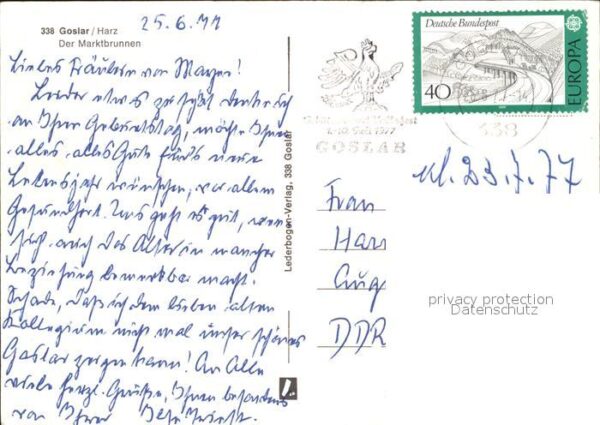 25.6.77
338 Goslar / Harz
Der Marktbrunnen
Liebes Fräulein von Mayer!
Leider etwas zu spät denke ich
an Ihren Geburtstag, möchte Ihnen
alles, alles Gute fürs neue
Lebensjahr wünschen, vor allem
Gesundheit. Uns geht es gut, wenn
sich auch das Alter in mancher
Beziehung bemerkbar macht.
Schade, daß ich dem lieben alten
Kollegium nicht mal unser schönes
Goslar zeigen kann! An Alle
viele herzl. Grüße, Ihnen besonders
von Ihrer
Lederbogen-Verlag, 338 Goslar
Deutsche Bundespost
40
EUROPA
1.-10. Juli 1977
GOSLAR
338
23.7.77
Frau
Han
Aug
DDR
privacy protection
Datenschutz